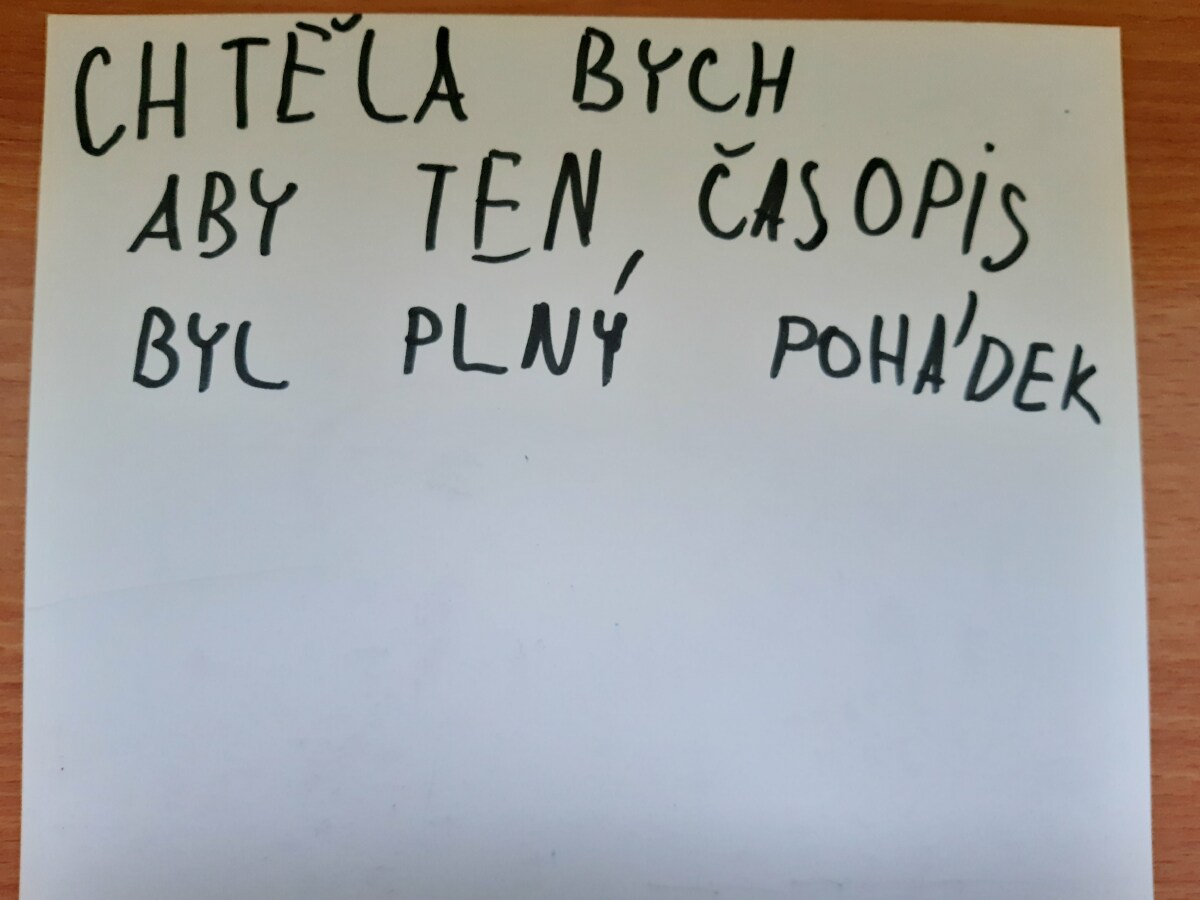 CHTĚLA BYCH
ABY TEN ČASOPiS
BYL PLNÝ POHÁDEK